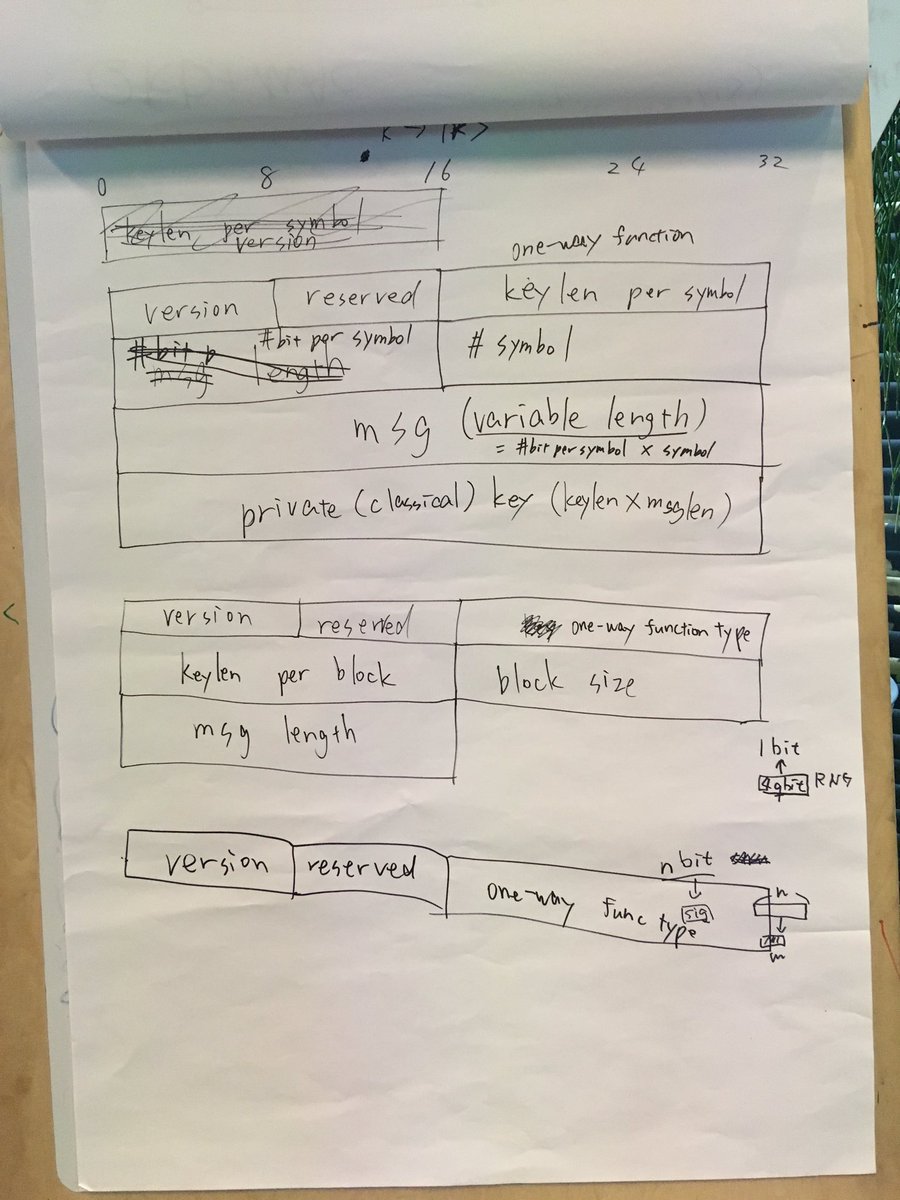 k → |k>
0 8 16 24 32
keylen per symbol
version
one-way function
version reserved keylen per symbol
#bit per symbol # symbol
#bit p
msg length
msg (variable length)
= #bit per symbol × symbol
private (classical) key (keylen × msglen)
version reserved one-way function type
keylen per block block size
msg length
1 bit
qbit RNG
n bit
version reserved one-way func type
sig
n
m